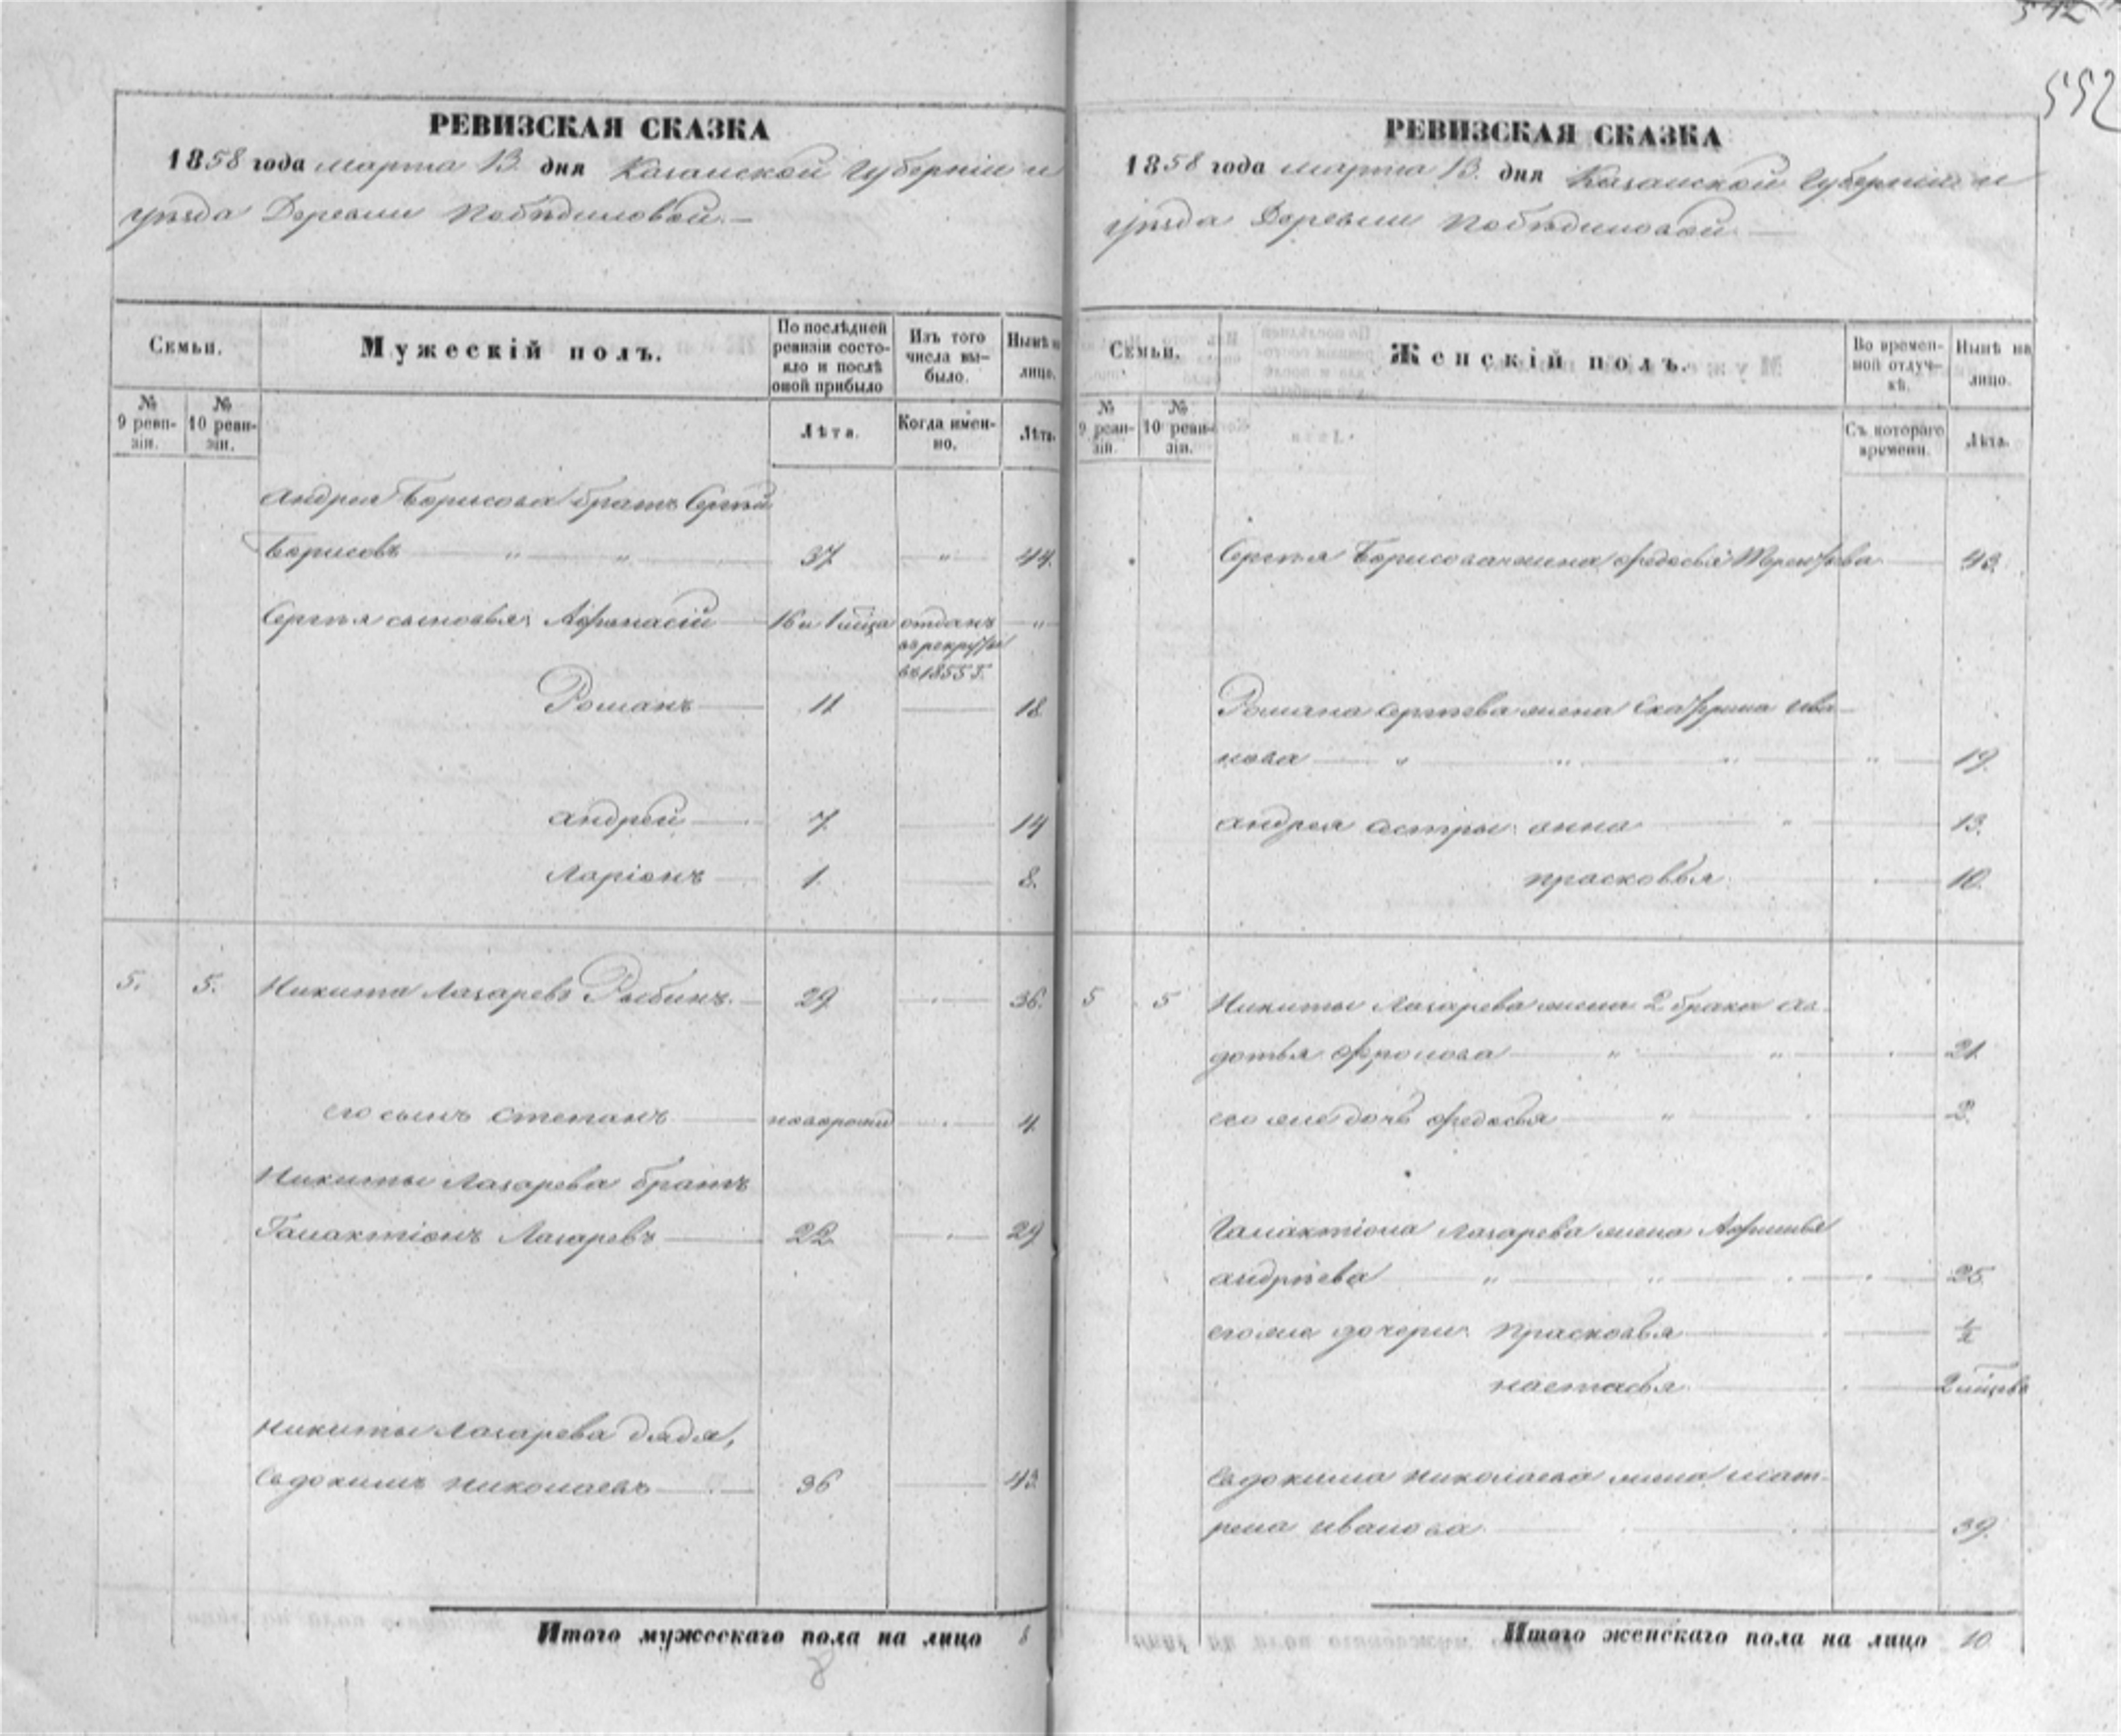 552
РЕВИЗСКАЯ СКАЗКА
1858 года марта 13 дня Казанской Губерніи и
уѣзда Деревни Побѣдиловой
Семьи.
Мужескій полъ.
По послѣдней ревизіи состояло и послѣ оной прибыло
Изъ того числа выбыло.
Нынѣ на лицо.
№ 9 ревизіи.
№ 10 ревизіи.
Лѣта.
Когда именно.
Лѣта.
Андрея Борисова братъ Сергѣй
Борисовъ " " 37 " 44.
Сергѣя сыновья: Афонасій 16 и 1 мѣца отданъ "
въ рекруты
въ 1855 г.
Романъ 11 18
Андрей 7. 14
Ларіонъ 1. 8.
5. 5. Никита Лазаревъ Рыбинъ. 29 36.
его сынъ Степанъ новорожд 4
Никиты Лазарева братъ
Галактіонъ Лазаревъ 22 29
Никиты Лазарева дядя,
Евдокимъ Николаевъ 36 43.
Итого мужескаго пола на лицо 8
8
РЕВИЗСКАЯ СКАЗКА
1858 года марта 13. дня Казанской Губерніи и
уѣзда Деревни Побѣдиловой
Семьи.
Женскій полъ.
Во временной отлучкѣ.
Нынѣ на лицо.
№ 9 ревизіи.
№ 10 ревизіи.
Съ котораго времени.
Лѣта.
Сергѣя Борисова жена Федосья Терентьева 43.
Романа Сергѣева жена Екатерина Ива-
нова " " " " 19.
Андрея сестры: Анна " 13.
Прасковья 10.
5 5 Никиты Лазарева жена 2 брака Ав-
дотья Фролова " " 21.
его же дочь Федосья " 2.
Галактіона Лазарева жена Афимья
Андрѣева " " 25.
его же дочери: Прасковья ½
Настасья 2 мѣцевъ
Евдокима Николаева жена Мат-
рена Иванова 39.
Итого женскаго пола на лицо 10